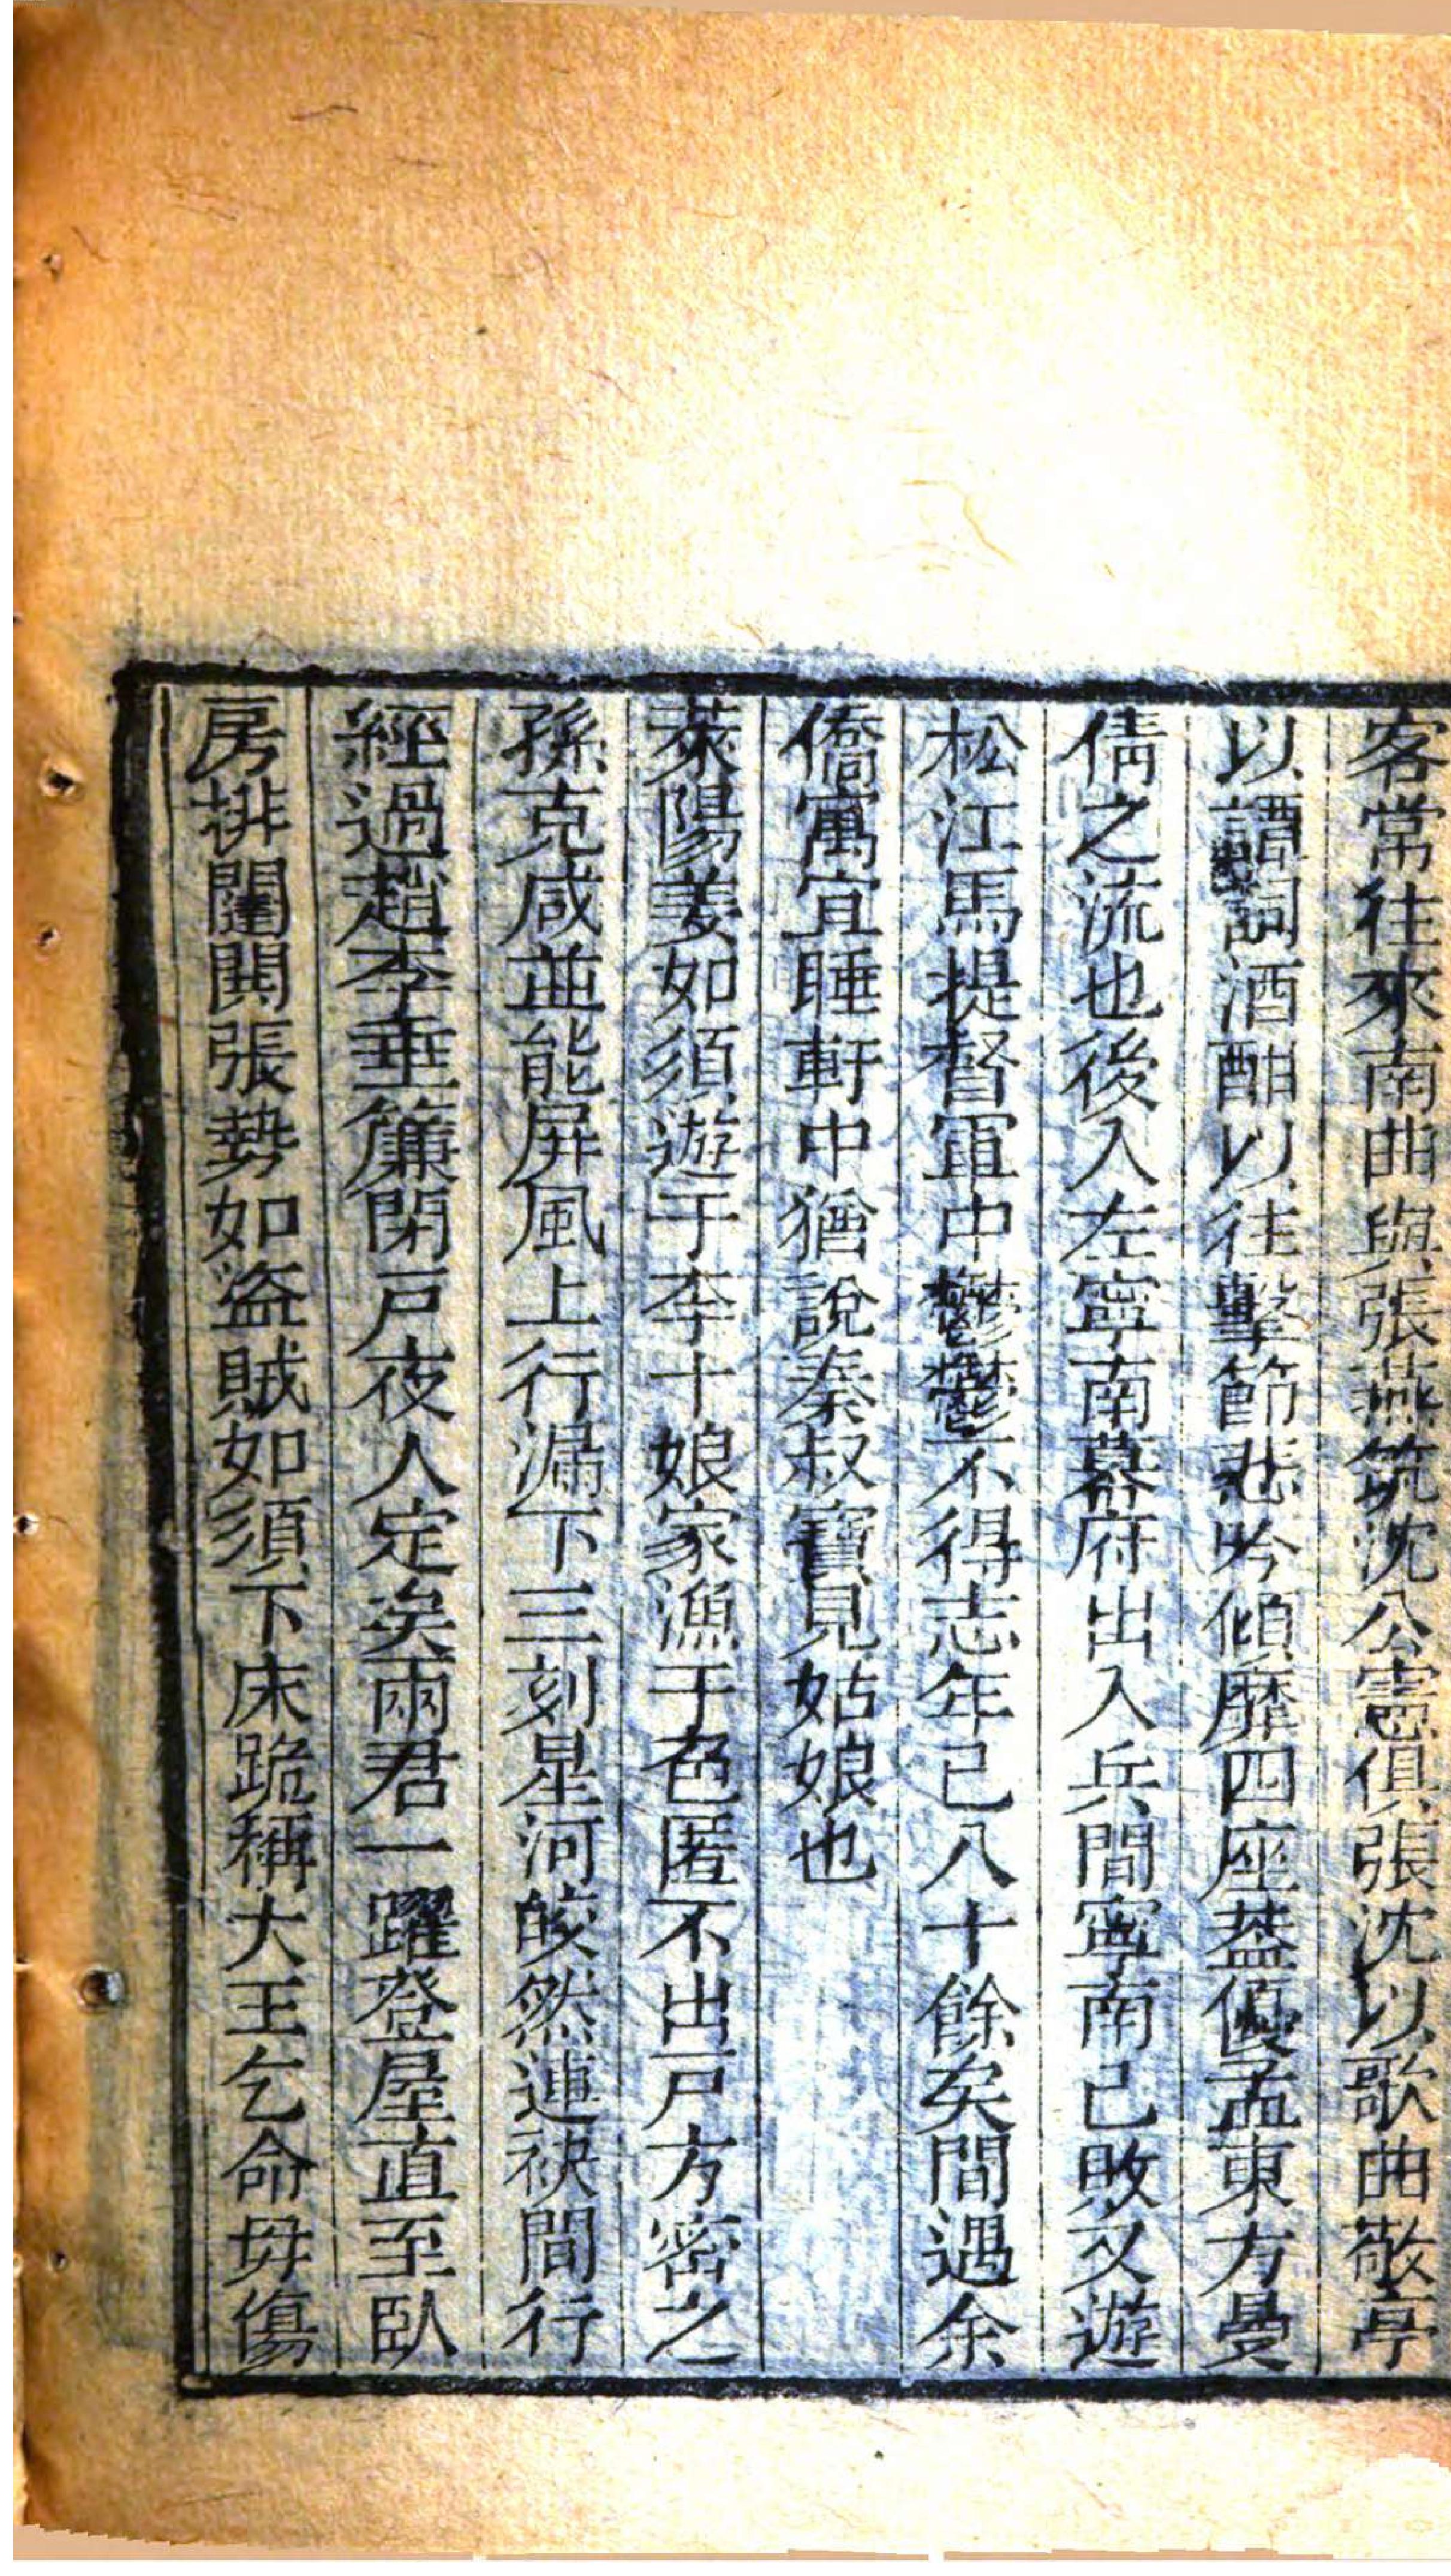 客常往來南曲與張燕筑沈公憲俱張沈以歌曲敬亭
以譚詞酒酣以往擊節悲吟傾靡四座葢優孟東方曼
倩之流也後入左寧南幕府出入兵間寧南已敗又遊
松江馬提督軍中鬱鬱不得志年已八十餘矣間遇余
僑寓宜睡軒中猶說秦叔寶見姑娘也
萊陽姜如須遊于李十娘家漁于色匿不出戸方密之
孫克咸並能屏風上行漏下三刻星河皎然連袂間行
經過趙李垂簾閉戸夜人定矣兩君一躍登屋直至臥
房排闥開張勢如盜賊如須下床跪稱大王乞命毋傷